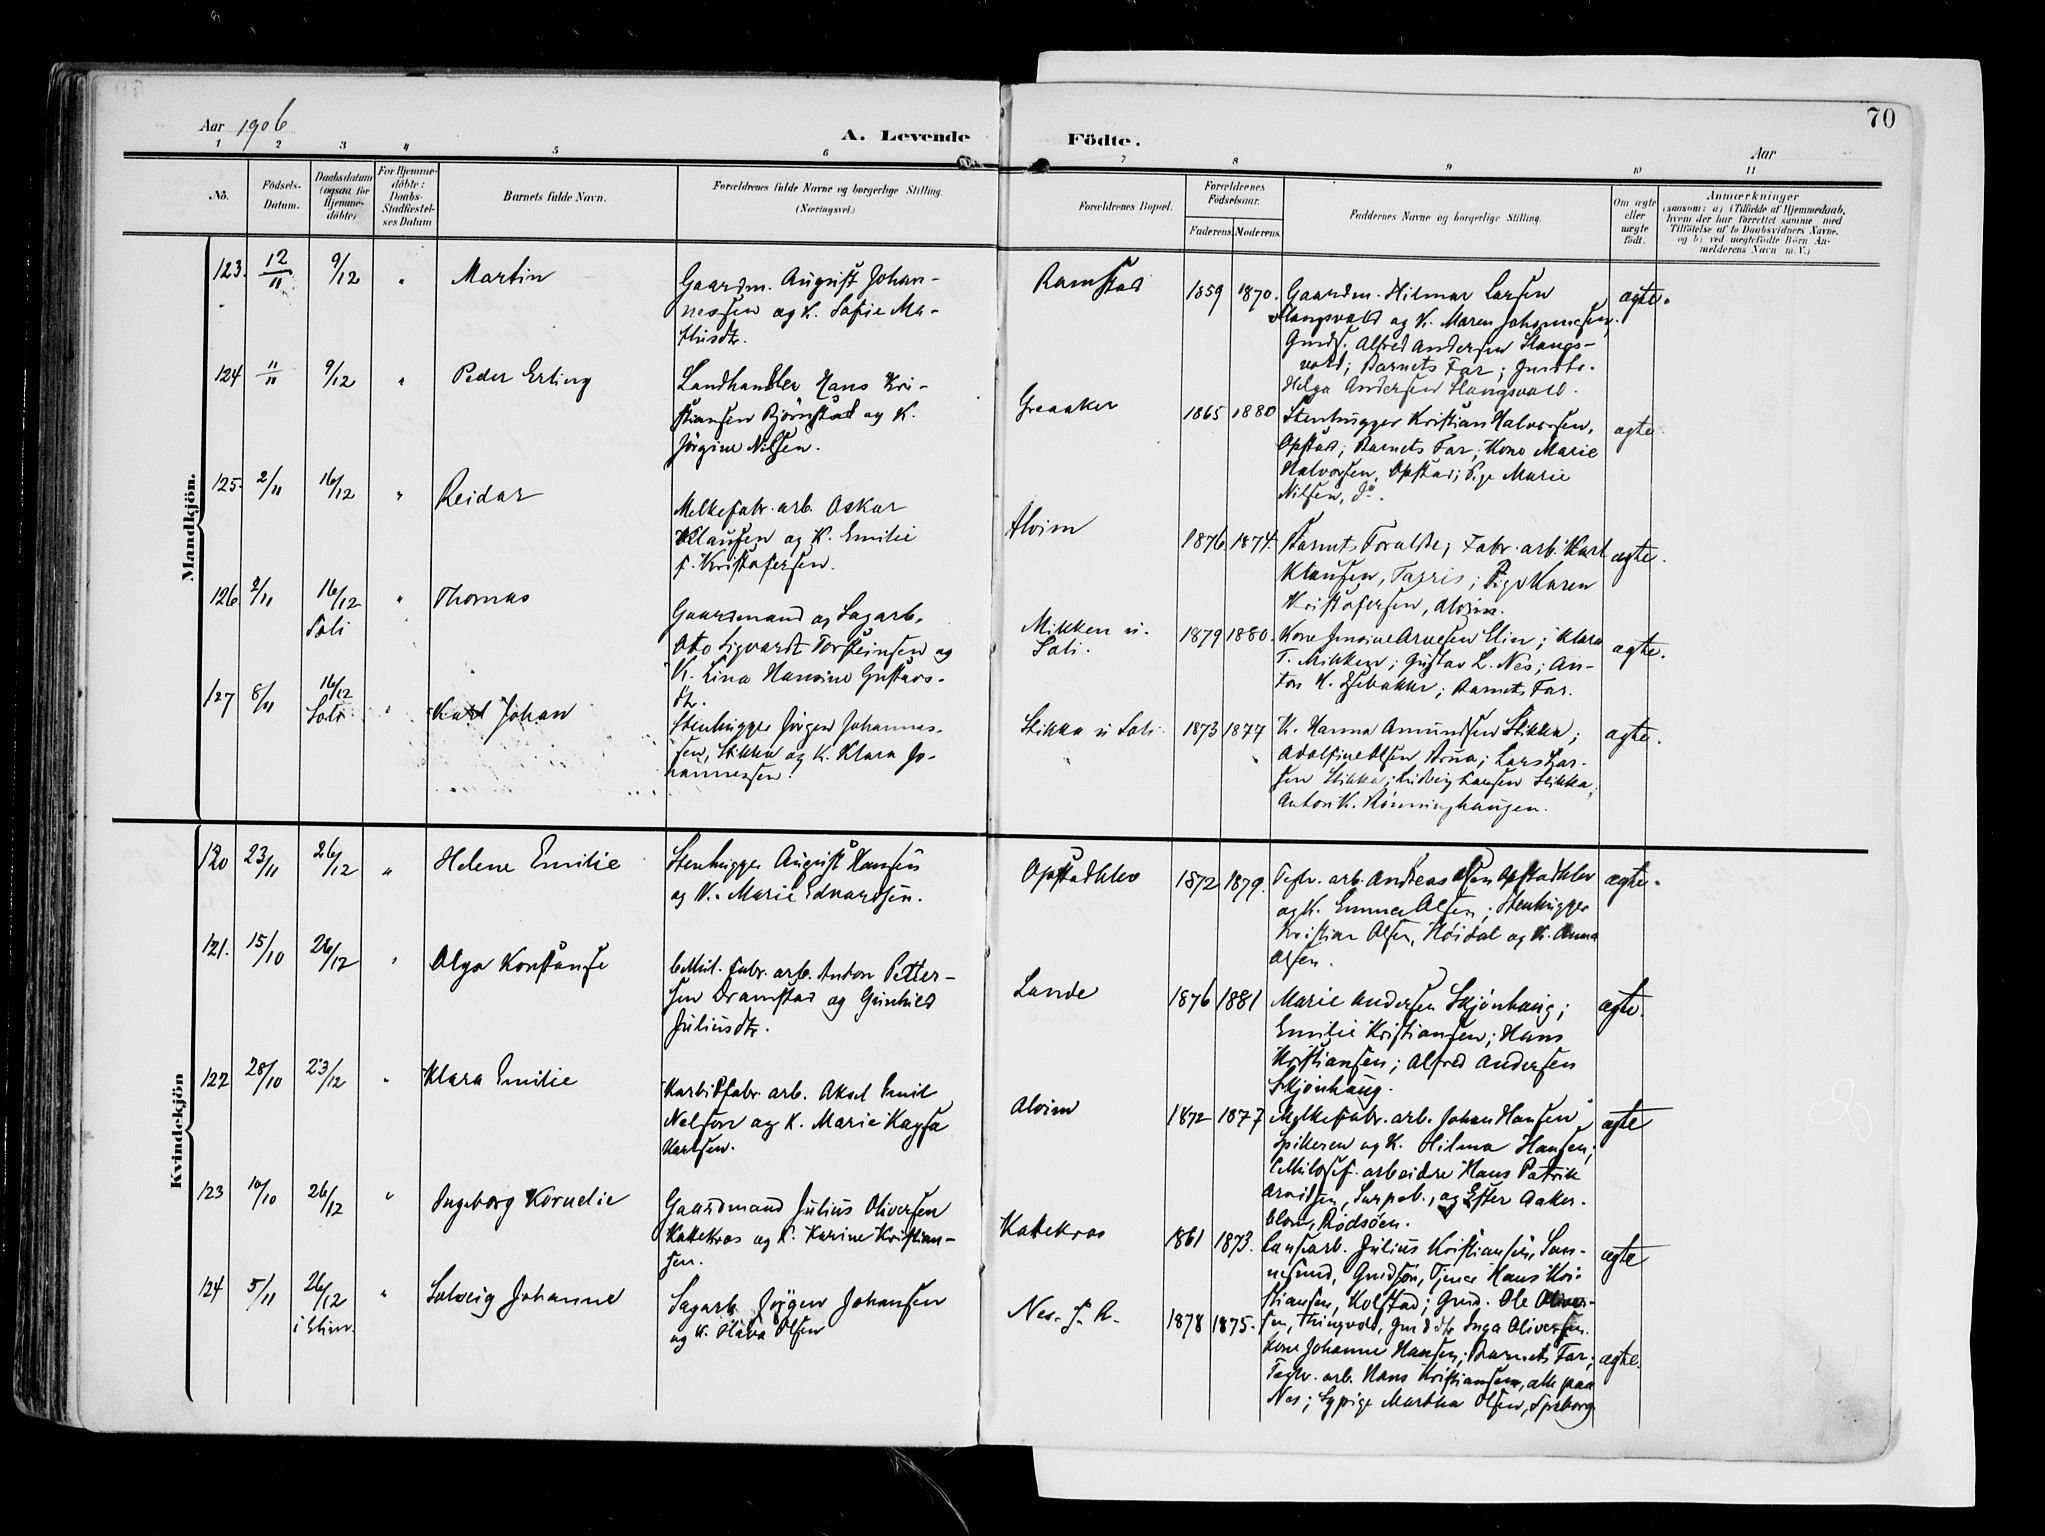 70
Aar 1906
A. Levende Födte.
Aar
1 2 3 4 5 6 7 8 9 10 11
No.
Födsels-
Datum.
Daabsdatum
(ogsaa for
Hjemme-
döbte)
For Hjemme-
döbte:
Daabs-
Stadfæstel-
ses Datum
Barnets fulde Navn.
Forældrenes fulde Navne og borgerlige Stilling.
(Næringsvei.)
Forældrenes Bopæl.
Forældrenes
Födselsaar.
Faderens Moderens
Faddernes Navne og borgerlige Stilling.
Om ægte
eller
uægte
födt.
Anmærkninger
(saasom: a) i Tilfælde af Hjemmedaab,
hvem der har forrettet samme, med
Tilföielse af to Daabsvidners Navne,
og b) ved uægtefödte Börn An-
melderens Navn m. V.)
Mandkjön.
123. 12/11 9/12 " Martin
Gaardm. August Johan-
nessen og K. Sofie Ma-
thisdtr.
Ramstad
1859 1870.
Gaardm. Hilmar Larsen
Hangsvald og K. Maren Johannesen,
Gmds. Alfred Andersen Hangs-
vald; Barnets Far; Gmdtr.
Helga Andersen Hangsvald.
ægte.
124 11/11 9/12 " Peder Erling
Landhandler Hans Kri-
stiansen Björnstad og K.
Jørgine Nilsen.
Greaaker
1865 1880
Stenhugger Kristian Halvorsen,
Opstad; Barnets Far; Kone Marie
Halvorsen, Opstad; Pige Marie
Nilsen, do.
ægte.
125. 2/11 16/12 " Reidar
Melkefabr. arb. Oskar
Klausen og K. Emilie
f. Kristofersen.
Alvim
1876 1874.
Barnets Foraldre; Fabr. arb. Karl
Klausen, Tarris; Pige Karen
Kristofersen, Alvim.
ægte.
126. 2/11 16/12 Soli " Thomas
Gaardmand og Sagarb.
Otto Sigvardt Torsteinsen og
K. Lina Hansine Gustavs-
dtr.
Mikken i
Soli.
1879 1880.
Kone Jensine Arnesen Elin; Klara
T. Mikken; Gustav L. Nes; An-
ton K. Isebakke; Barnets Far.
ægte.
127 8/11 16/12 Soli " Karl Johan
Stenhugger Jörgen Johannes-
sen, Stikka og K. Klara Jo-
hannessen.
Stikka i Soli
1873 1877
K. Hanna Amundsen Stikka;
Adolfine Olsen, Brua; Lars Lar-
sen Stikka; Ludvig Larsen Stikka;
Anton K. Rønninghaugen.
ægte.
Kvindekjön
120 23/11 26/12 " Helene Emilie
Stenhugger August Hansen
og K. Marie Edvardsen.
Opstadklev
1872 1879.
Teglv. arb. Andreas Olsen Opstadklev
og K. Emma Olsen; Stenhugger
Kristian Olsen, Höidal og K. Anna
Olsen.
ægte.
121. 15/10 26/12 " Olga Konstanse
Cellul. fabr. arb. Anton Petter-
sen Dramstad og Gunhild
Juliusdtr.
Lande
1876 1881
Marie Andersen Skjønhaug;
Emilie Kristiansen; Hans
Kristiansen; Alfred Andersen
Skjønhaug.
ægte.
122 28/10 23/12 " Klara Emilie
Karbidfabr. arb. Aksel Emil
Nelson og K. Marie Kaysa
Karlsen.
Alvim
1872 1877
Melkefabr. arb. Johan Hansen
Spikeren og K. Hilma Hansen;
Cellulosef. arbeidere Hans Patrik
Arvidsen, Sarpsb., og Ester Aaker-
blom, Rödsöen.
ægte
123 10/10 26/12 " Ingeborg Kornelie
Gaardmand Julius Oliversen
Kattekras og K. Karine Kristian-
sen.
Kattekras
1861 1873.
Landarb. Julius Kristiansen, San-
nesund, Gmdsön, Tjener Hans Kri-
stiansen, Kolstad; Gmd. Ole Oliver-
sen, Tingvold, Gmddtr Inga Oliversen.
ægte
124 5/11 26/12 i Elim. " Solveig Johanne
Sagarb. Jörgen Johansen
og K. Olava Olsen
Nes. J. R.
1878 1875.
Kone Johanne Hansen; Barnets Far;
Teglv. arb. Hans Kristiansen, alle paa
Nes; Sypige Martha Olsen, Spleborg
ægte.